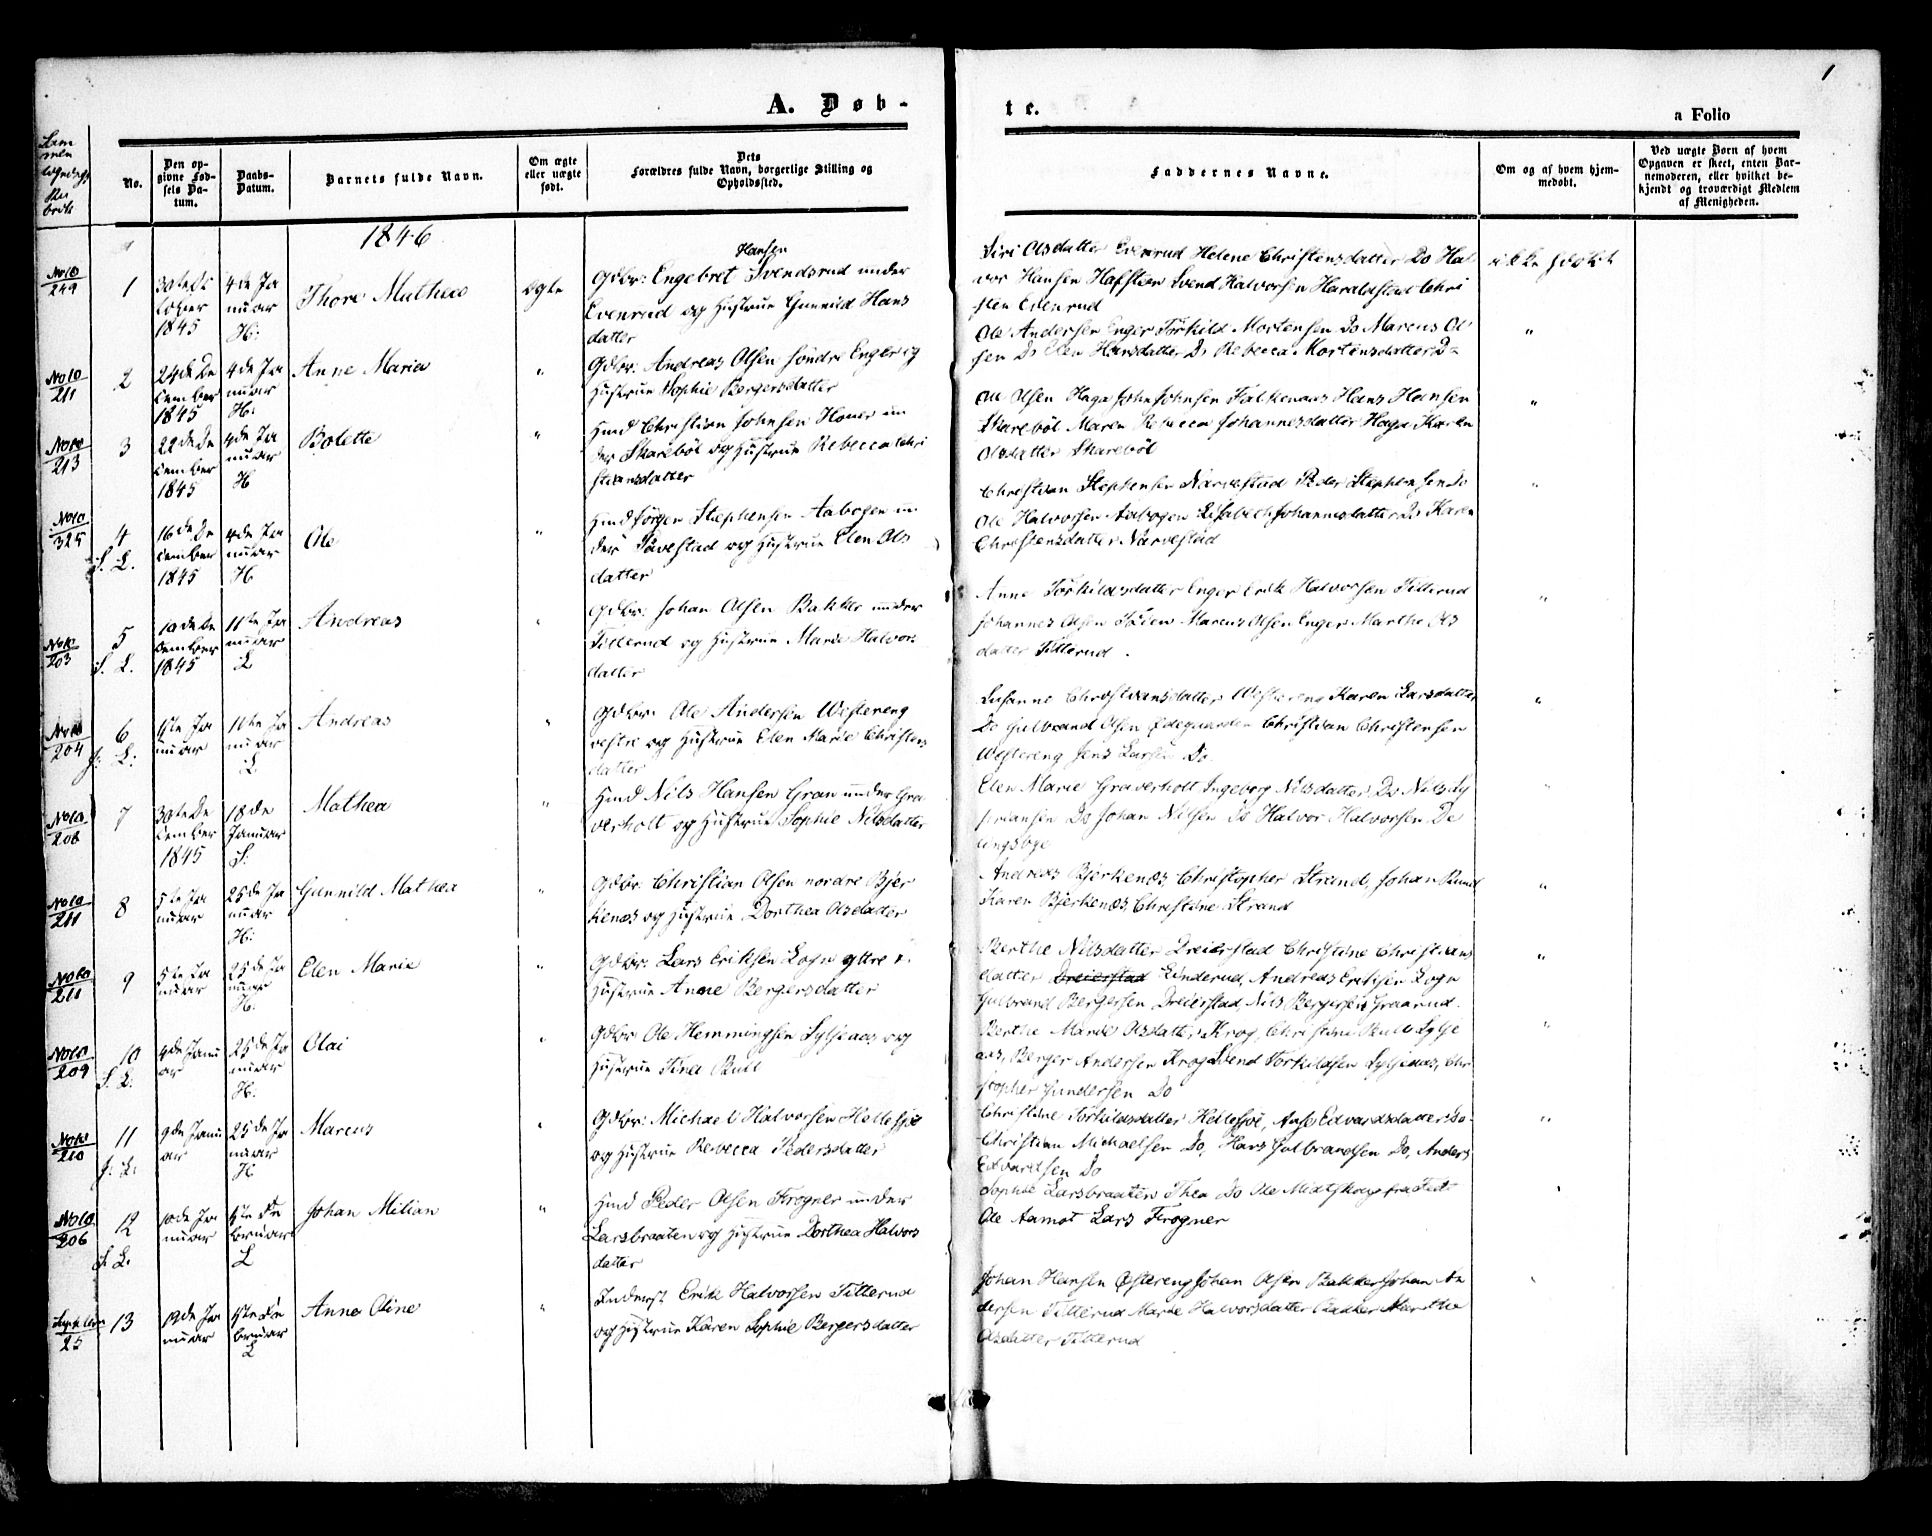 1
A. Døb-
te.
a Folio
No.
Den op-
givne Fød-
sels Da-
tum.
Daabs-
Datum.
Barnets fulde Navn.
Om ægte
eller uægte
født.
Dets
Forældres fulde Navn, borgerlige Stilling og
Opholdssted.
Faddernes Navne.
Om og af hvem hjem-
medøbt.
Ved uægte Børn af hvem
Opgaven er skeet, enten Bar-
nemoderen, eller hvilket be-
kjendt og troværdigt Medlem
af Menigheden.
1846
No 10
249
1
30te Oc
tober
1845
4de Ja
nuar
H:
Thore Mathea
ægte
Hansen
Gdbr: Engebret Svendsrud under
Evenrud og Hustrue Gunnild Hans
datter
Siri Olsdatter Evenrud Helene Christensdatter Do Hal
vor Hansen Svend Halvorsen Haraldstad Chri
sten Evenrud
ikke hjødbt
No 10
211
2
24de De
cember
1845
4de Ja
nuar
H:
Anne Maria
"
Gdbr: Andreas Olsen søndre Enger og
Hustrue Sophie Bergersdatter
Ole Andersen Enger Torkild Mortensen Do Marcus Ol
sen Do Elen Hansdatter Do Rebecca Mortensdatter Do
"
No 10
213
3
22de De
cember
1845
4de Ja
nuar
H
Bolette
"
Huusmd Christian Johnsen Honer un
der Skarebøl og Hustrue Rebecca Chri
stiansdatter
Ole Olsen Haga John Johnsen Falkenaas Hans Hansen
Skarebøl Maren Rebecca Johannesdatter Haga Karen
Olsdatter Skarebøl
"
No 10
325
4
S. L.
16de De
cember
1845
4de Ja
nuar
H
Ole
"
Huusmd Jørgen Stephensen Aabogen un
der og Hustrue Elen Ols
datter
Christian Stephensen Narvestad Peder Stephensen Do
Ole Halvorsen Aabogen Lisabeth Johannesdatter Do Karen
Christensdatter Narvestad
"
No 10
203
5
S. L.
10de De
cember
1845
11te Ja
nuar
L
Andreas
"
Gdbr: Johan Olsen Bakke under
Titterud og Hustrue Marie Halvors
datter
Anne Torkildsdatter Enger Erik Halvorsen Titterud
Johannes Olsen Marcus Olsen Enger Marthe Ols
datter Titterud.
"
No 10
204
6
S. L.
1ste Ja
nuar
11te Ja
nuar
L
Andreas
"
Gdbr: Ole Andersen Westereng
vestre og Hustrue Elen Marie Christens
datter
Susanne Christiansdatter Westereng Karen Larsdatter
Do Gulbrand Olsen Christian Christensen
Westereng Jens Larsen Do.
"
No 10
208
7
30te De
cember
1845
18de
Januar
S:
Mathea
"
Huusmd Nils Hansen Gran under Gra
verholt og Hustrue Sophie Nilsdatter
Elen Marie Graverholt Ingeborg Nilsdatter Do Nils Cy
prians​en Do Johan Nilsen Do Halvor Halvorsen De
lingsbye
"
No 10
211
8
5te Ja
nuar
25de Ja
nuar
H:
Gunnild Mathea
"
Gdbr: Christian Olsen nordre Bjer
kenæs og Hustrue Dorthea Olsdatter
Andreas Bjerkenæs, Christopher Strand, Johan Rund
Karen Bjerkenæs, Christine Strand
"
No 10
211
9
5te Ja
nuar
25de Ja
nuar
H:
Elen Marie
"
Gdbr: Lars Eriksen Rogn yttre o.
Hustrue Anne Bergersdatter
Berthe Nilsdatter Dreierstad Christine Christians
datter Dreierstad Linderud, Andreas Eriksen Rogn
Gulbrand Bergersen, Dreierstad, Nils Bergersen Graarud.
"
No 10
209
10
S. L.
4de Janu
ar
25de Ja
nuar
H:
Olai
"
Gdbr: Ole Hemmingsen Sylseaas og
Hustrue Tina Bull
Berthe Marie Olsdatter, Krog, Christine Bull Sylse
aas, Berger Andersen Krog Svend Torkildsen Sylseaas, Chr
stopher Gundersen Do
"
No 10
210
11
S. L.
9de Janu
ar
25de Ja
nuar
H
Marcus
"
Gdbr: Michael Halvorsen Hellesjøe
og Hustrue Rebecca Pedersdatter
Christine Torkildsdatter Hellesjøe, Anse Edvardsdatter Do.
Christian Michaelsen Do, Hans Gulbrandsen Do, Anders
Edvardsen Do
"
No 10
206
12
S. L.
10de Ja
nuar
1ste Fe
bruar
L
Johan Milian
"
Huusmd Peder Olsen Frogner under
Larsbraaten og Hustrue Dorthea Halvors
datter
Sophie Larsbraaten Thea Do Ole Midtskoge fra Fedt
Ole Aamot Lars Frogner
"
25
13
19de Ja
nuar
1ste Fe
bruar
L
Anne Oline
"
Inderst Erik Halvorsen Titterud
og Hustrue Karen Sophie Bergersdatter
Johan Hansen Østereng Johan Olsen Bakke Johan An
dersen Titterud Marie Halvorsdatter Bakke Marthe
Olsdatter Titterud
"